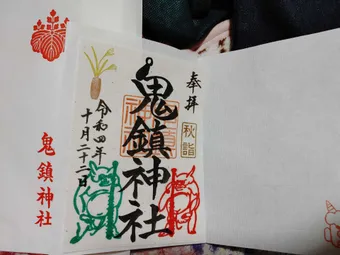 奉拝
秋詣
鬼鎮神社
令和四年
十月二十二日
鬼鎮神社